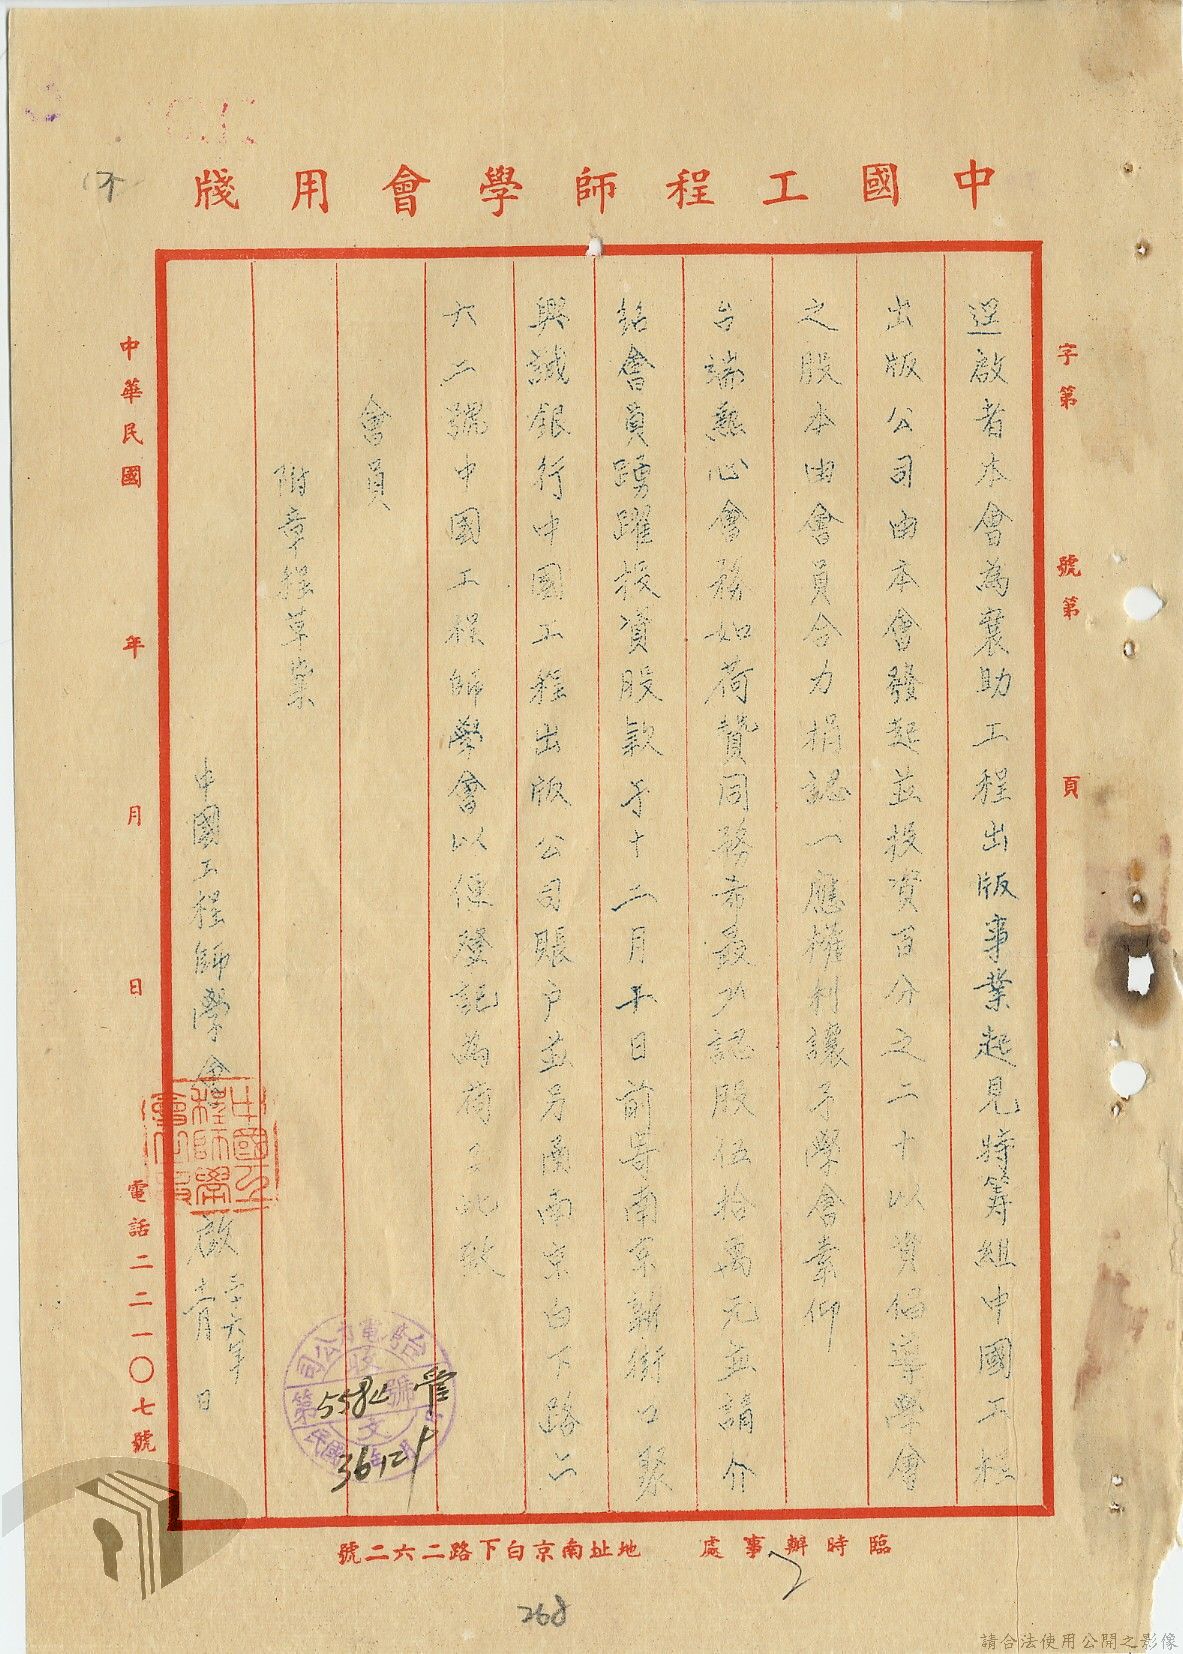 中國工程師學會用牋
字第 號第 頁
逕啟者本會為襄助工程出版事業起見特籌組中國工程
出版公司由本會發起並投資百分之二十以資倡導學會
之股本由會員合力捐認一應權利讓予學會素仰
台端熱心會務如荷贊同務希最少認股伍拾萬元並請介
紹會員踴躍投資股款予十二月十日前寄南京新街口聚
興誠銀行中國工程出版公司賬戶並另函南京白下路二
六二號中國工程師學會以便登記為荷此致
會員
附章程草案
中國工程師學會啟 三十六年 月 日
中華民國 年 月 日 電話二二一〇七號
臨時辦事處 地址南京白下路二六二號
收文
第5584號
36 12 1
268
請合法使用公開之影像